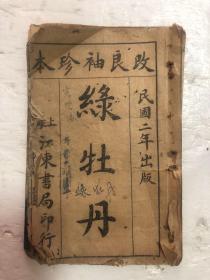 改良袖珍本
民國二年出版
綠牡丹
上海江東書局印行